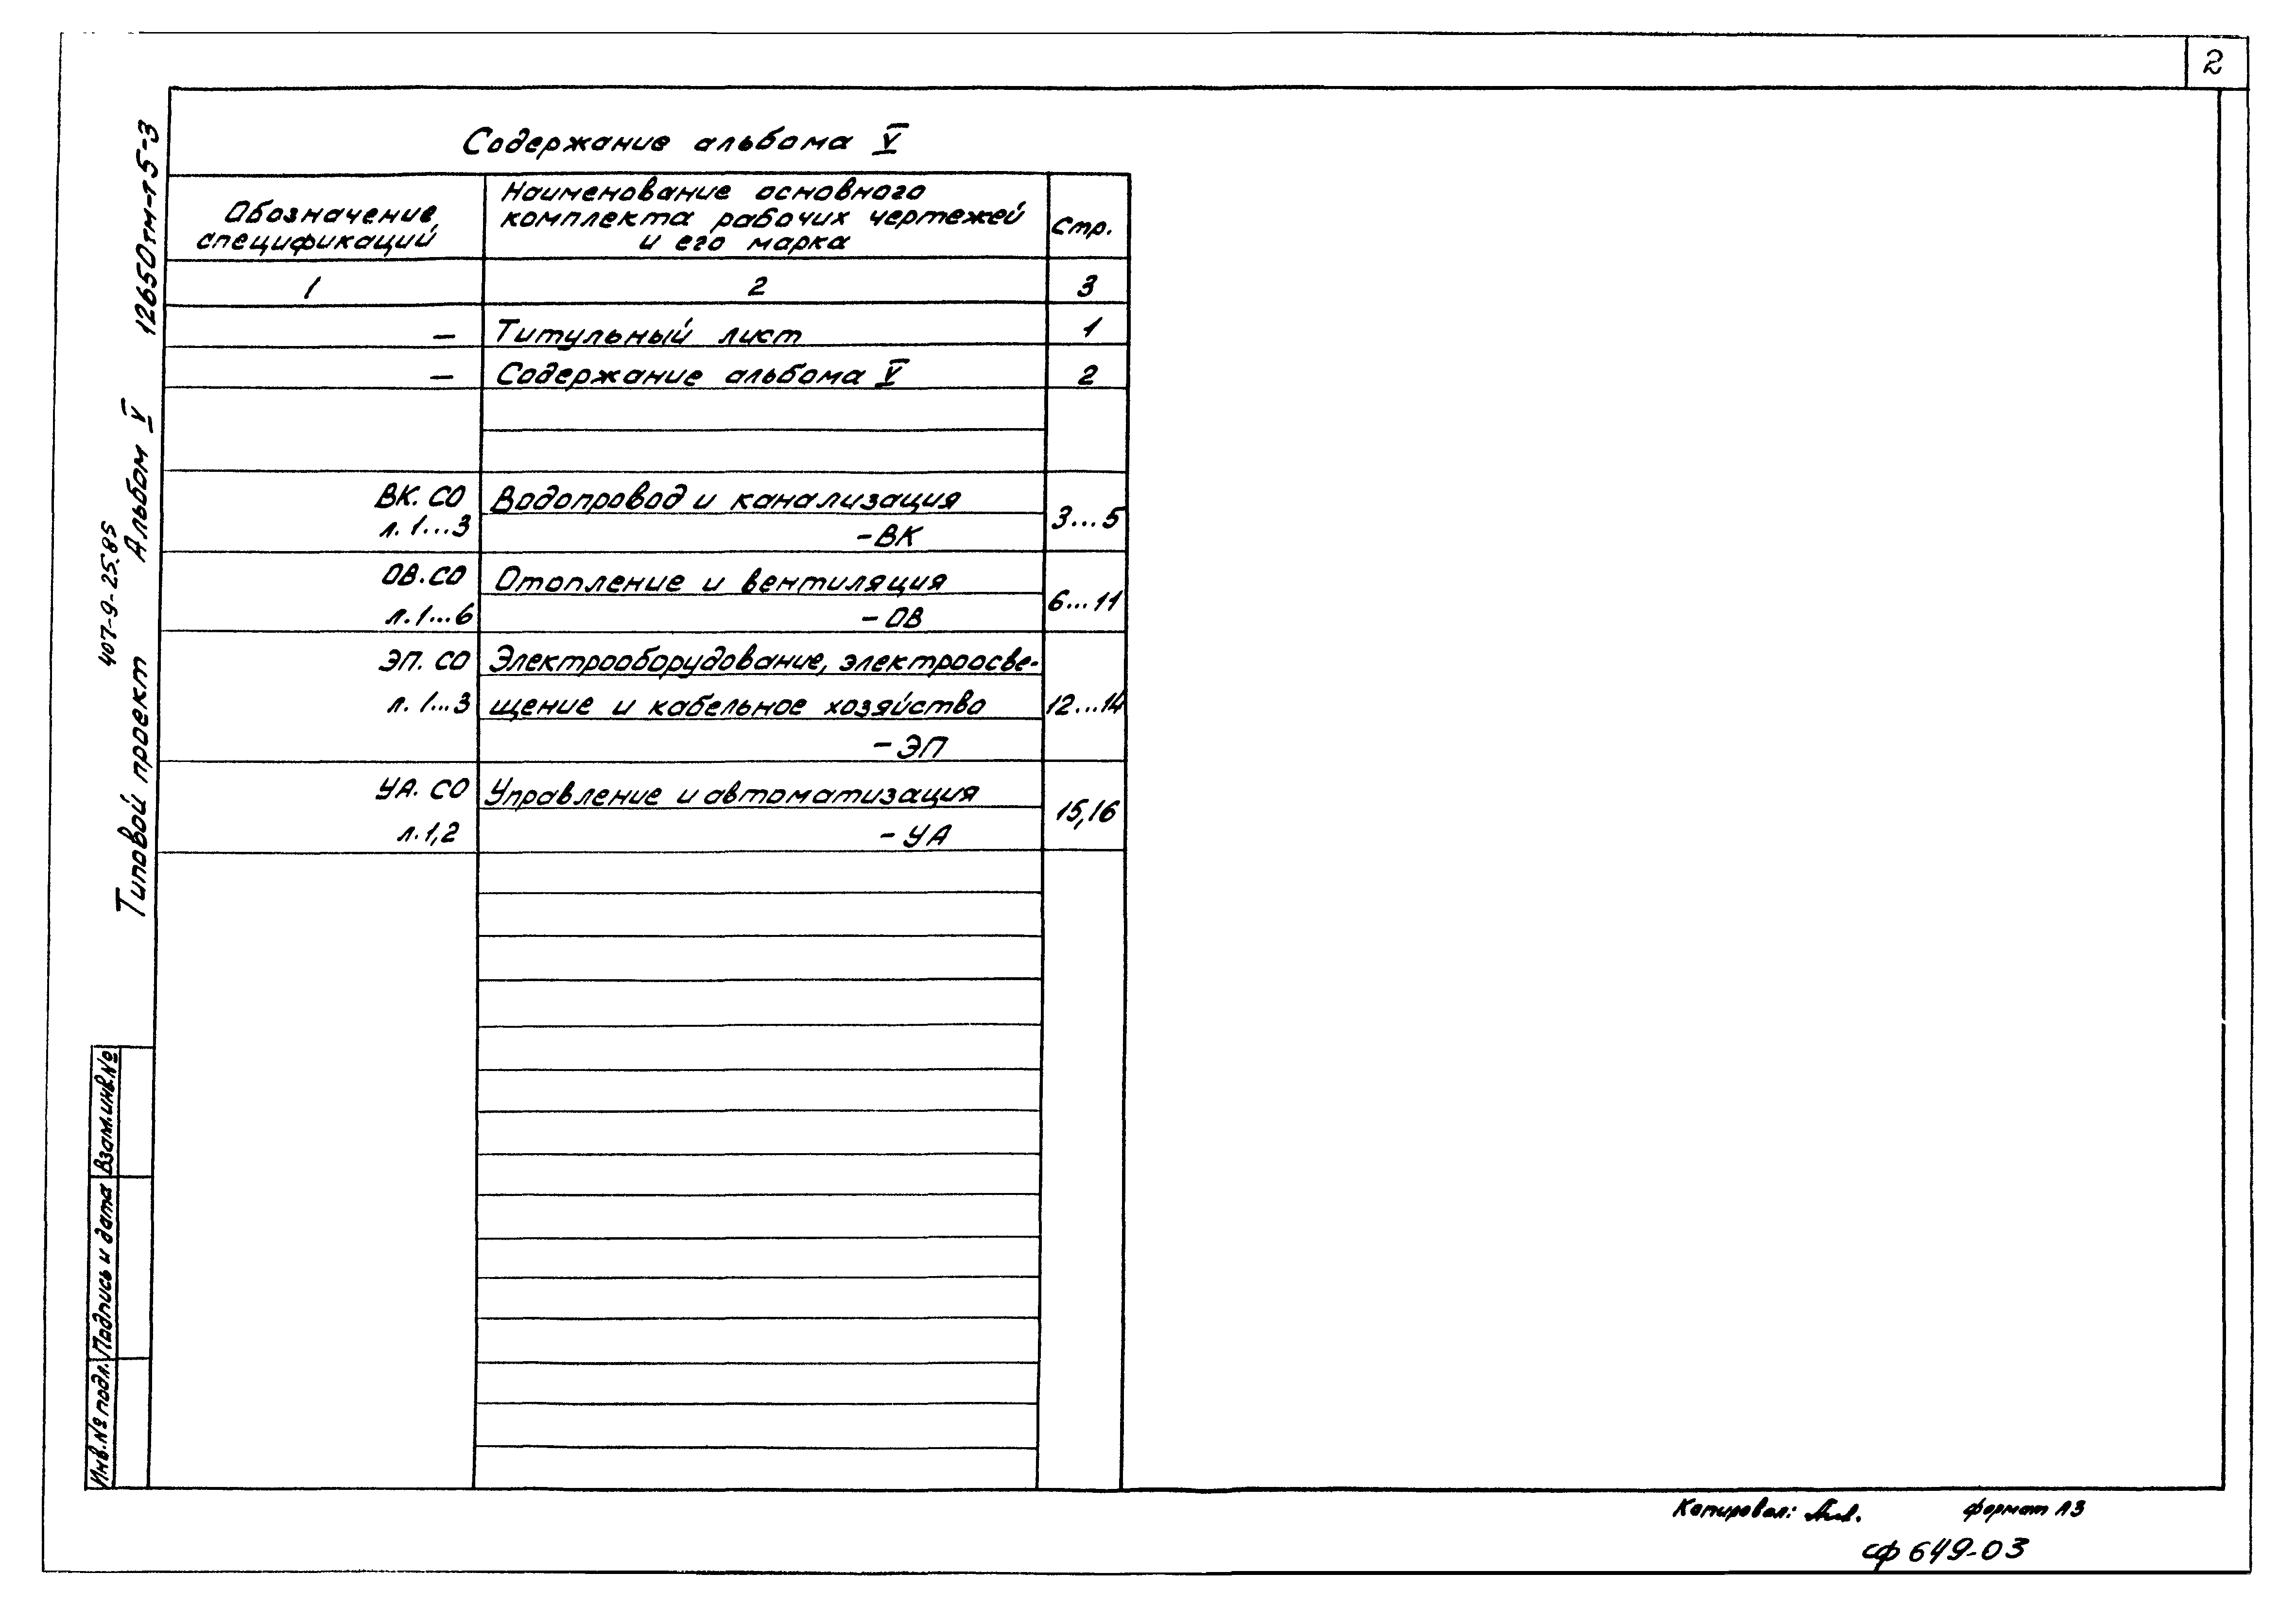 2
Содержание альбома V
Обозначение спецификаций
Наименование основного
комплекта рабочих чертежей
и его марка
Стр.
1 2 3
– Титульный лист 1
– Содержание альбома V 2
ВК. СО Водопровод и канализация
л. 1...3 –ВК 3...5
ОВ.СО Отопление и вентиляция
л. 1...6 –ОВ 6...11
ЭП. СО Электрооборудование, электроосве-
л. 1...3 щение и кабельное хозяйство 12...14
–ЭП
УА. СО Управление и автоматизация
л. 1,2 –УА 15,16
Типовой проект 407-9-25.85 Альбом V 12650тм-т5-3
Взам.инв.№
Подпись и дата
Инв.№ подл.
Копировал: формат А3
сф 649-03